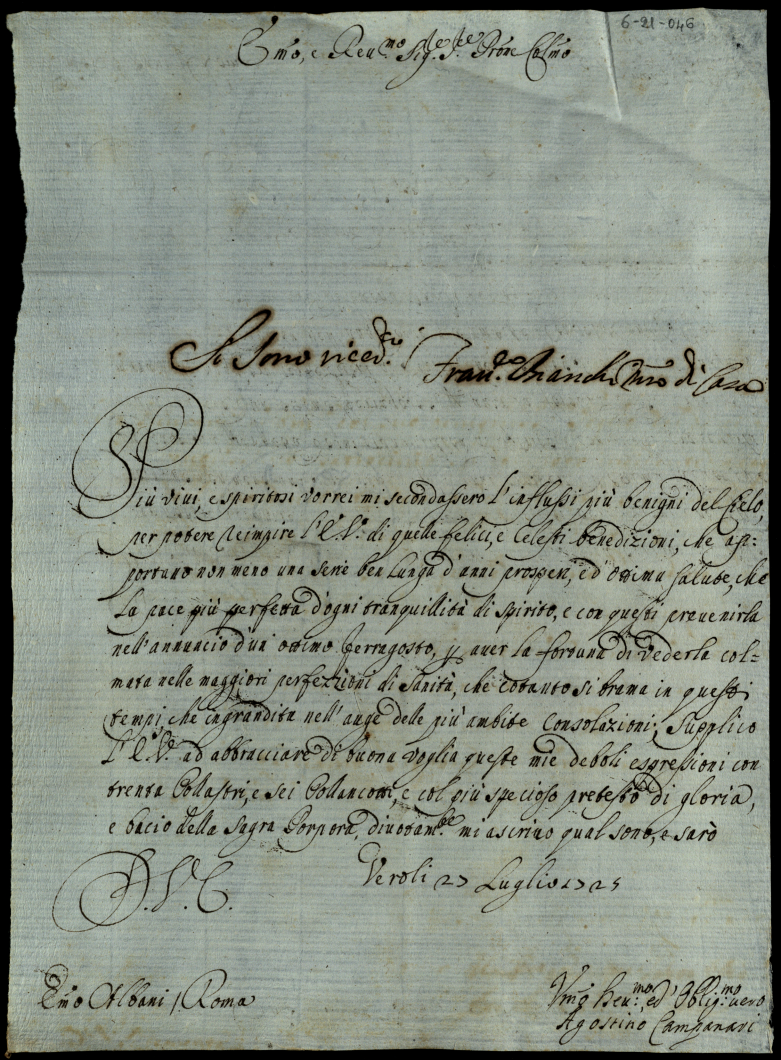 6-21-046
Emo, e Reu.mo Sig.re P.re Prōne Colmo
Si sono riced.ti
Franc.o Bianchi Mro di Casa
Più vivi, e spiritosi vorrei mi secondassero l'influssi più benigni del Cielo,
per potere reimpire l'E.V. di quelle felici, e Celesti benedizioni, che ap=
portano non meno una serie ben lunga d'anni prosperi, ed ottima salute, che
la pace più perfetta d'ogni tranquillità di spirito, e con questi preuenirla
nell'annuncio d'un ottimo ferragosto, p auer la fortuna di vederla col=
mata nelle maggiori perfezzioni di sanità, che cotanto si brama in questi
tempi, che ingrandita nell'auge delle più ambite Consolazioni; Supplico
l'E.V. ad abbracciare di buona voglia queste mie deboli espressioni con
trenta Pollastri, e sei Pollancotti, e col più specioso pretesto di gloria,
e bacio della Sagra Porpora, diuotam.te mi ascriuo qual sono, e sarò
D.V.E.
Veroli 27 Luglio 1725
Emo Albani / Roma
Vmo Deu.mo, ed Oblig.mo uero
Agostino Campanari